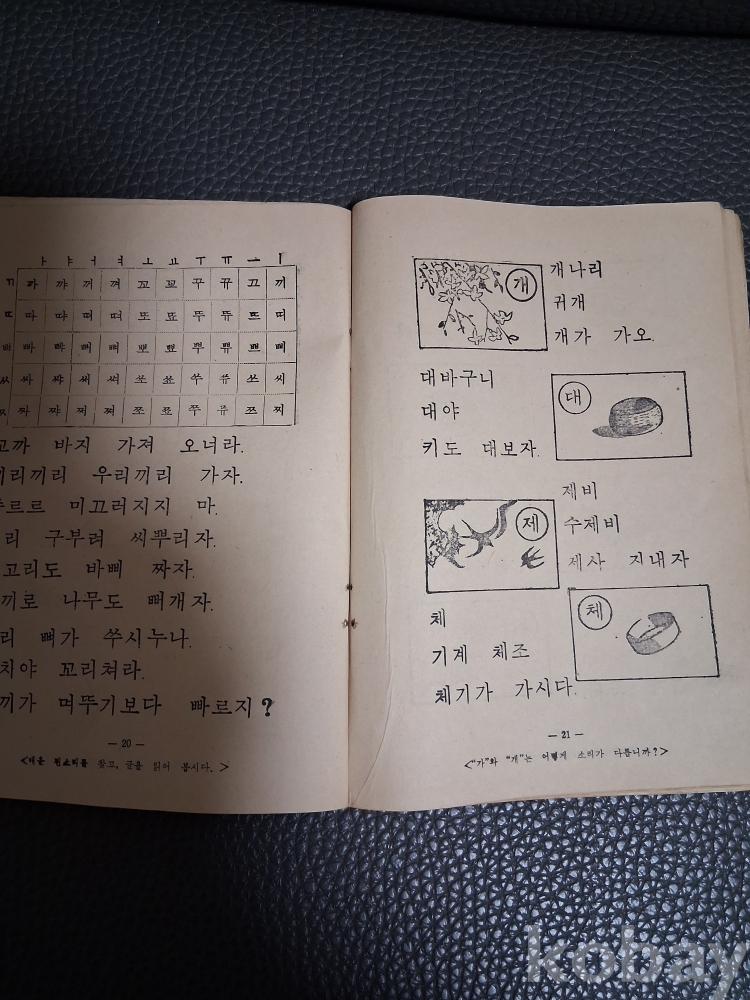 ㅏ ㅑ ㅓ ㅕ ㅗ ㅛ ㅜ ㅠ ㅡ ㅣ
ㄲ 까 꺄 꺼 껴 꼬 꾜 꾸 뀨 끄 끼
ㄸ 따 땨 떠 뗘 또 뚀 뚜 뜌 뜨 띠
ㅃ 빠 뺘 뻐 뼈 뽀 뾰 뿌 쀼 쁘 삐
ㅆ 싸 쌰 써 쎠 쏘 쑈 쑤 쓔 쓰 씨
ㅉ 짜 쨔 쩌 쪄 쪼 쬬 쭈 쮸 쯔 찌
고까 바지 가져 오너라.
끼리끼리 우리끼리 가자.
르르 미끄러지지 마.
리 구부려 씨뿌리자.
고리도 바삐 짜자.
끼로 나무도 뻐개자.
리 뼈가 쑤시누나.
치야 꼬리쳐라.
끼가 며뚜기보다 빠르지?
— 20 —
<배운 된소리를 찾고, 글을 읽어 봅시다.>
개
개나리
귀개
개가 가오.
대바구니
대야
키도 대보자.
대
제
제비
수제비
제사 지내자
체
기계 체조
체기가 가시다.
체
— 21 —
<"가"와 "개"는 어떻게 소리가 다릅니까?>
kobay